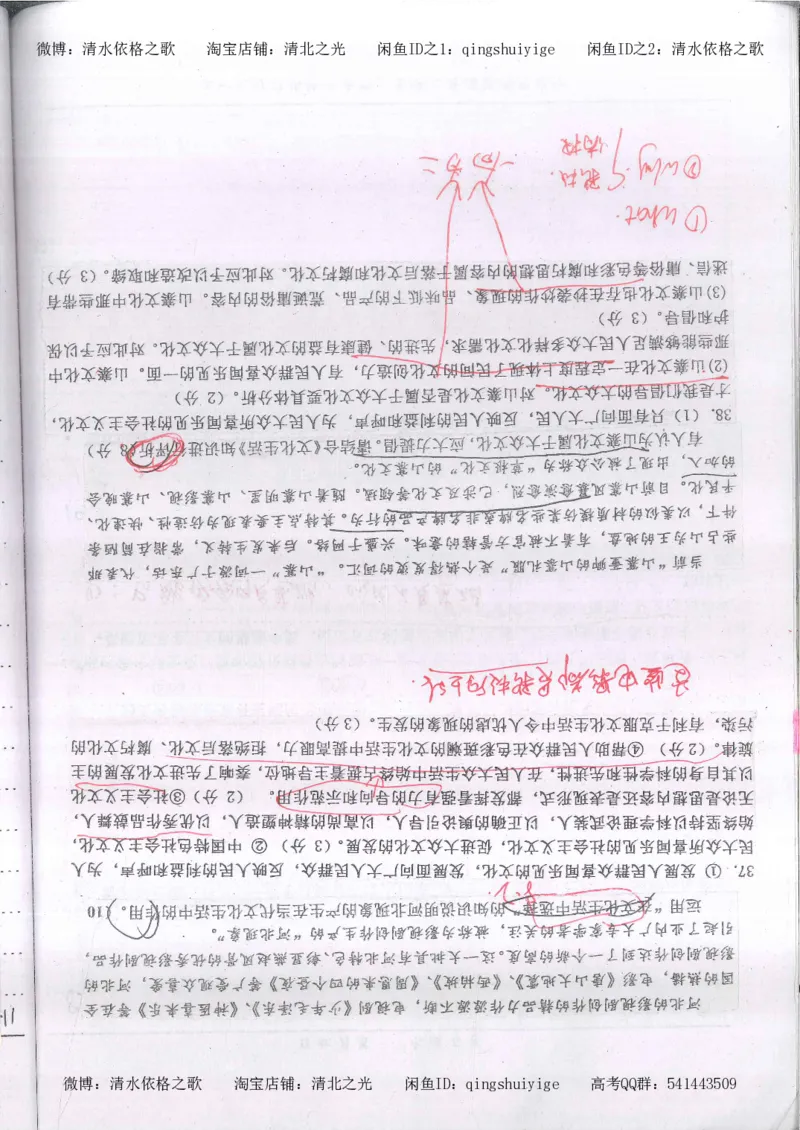 微博：清水依格之歌 淘宝店铺：清北之光 闲鱼ID之1：qingshuiyige 闲鱼ID之2：清水依格之歌
河北的影视剧创作的精品力作源源不断，电视剧《少年毛泽东》、《神医喜来乐》等在全
国的热播，电影《唐山大地震》、《西柏坡》、《周恩来的四个昼夜》等广受观众喜爱，河北的
影视剧创作达到了一个新的高度。这一大批具有河北特色、彰显燕赵风骨的优秀影视剧作品，
引起了业内广大专家学者的关注，被称为影视剧创作生产的“河北现象”。
运用“在文化生活中选择”的知识说明河北现象的产生在当代文化生活中的作用。（10
37. ① 发展人民群众喜闻乐见的文化，发展面向广大人民群众，反映人民的利益和呼声，为人
民大众所喜闻乐见的社会主义文化，促进大众文化的发展。（3 分）② 中国特色社会主义文化，
始终坚持以科学理论武装人，以正确的舆论引导人，以高尚的精神塑造人，以优秀作品鼓舞人，
无论是思想内容还是表现形式，都发挥着强有力的导向和示范作用。（2 分）③社会主义文化
以其自身的科学性和先进性，在人民大众生活中始终占据着主导地位，奏响了先进文化发展的主
旋律。（2 分）④帮助人民群众在色彩斑斓的文化生活中提高眼力，拒绝落后文化、腐朽文化的
污染，有利于克服文化生活中令人忧虑的现象的发生。（3 分）
当前“山寨重卿的山寨礼服”这个热得发烫的词汇。“山寨”一词源于广东话，代表那
些占山为王的地盘，有着不被官方管辖的意味。兴盛于网络。后来发生转义，常指在简陋条
件下，以类似的材质模仿某些名牌或非名牌产品的行为。其特点主要表现为仿造性、快速化、
平民化。目前山寨风暴愈演愈烈，已涉及文化等领域。随着山寨明星、山寨影视、山寨晚会
的加入，出现了被公众称为“草根文化”的山寨文化。
有人认为山寨文化属于大众文化，应大力提倡。请结合《文化生活》知识进行评析（8 分）
38. （1）只有面向广大人民，反映人民的利益和呼声，为人民大众所喜闻乐见的社会主义文化，
才是我们倡导的大众文化。对山寨文化是否属于大众文化要具体分析。（2 分）
(2)山寨文化在一定程度上体现了民间的文化创造力，有人民群众喜闻乐见的一面。山寨文化中
那些能够满足人民大众多样化文化需求，先进的、健康有益的文化属于大众文化。对此应予以保
护和倡导。（3 分）
(3)山寨文化也存在抄袭炒作的现象、品味低下的产品、荒诞庸俗的内容。山寨文化中那些带有
迷信、庸俗等色彩和腐朽思想的内容属于落后文化和腐朽文化。对此应予以改造和取缔。（3 分）
① what.
② why
微博：清水依格之歌 淘宝店铺：清北之光 闲鱼ID：qingshuiyige 高考QQ群：541443509